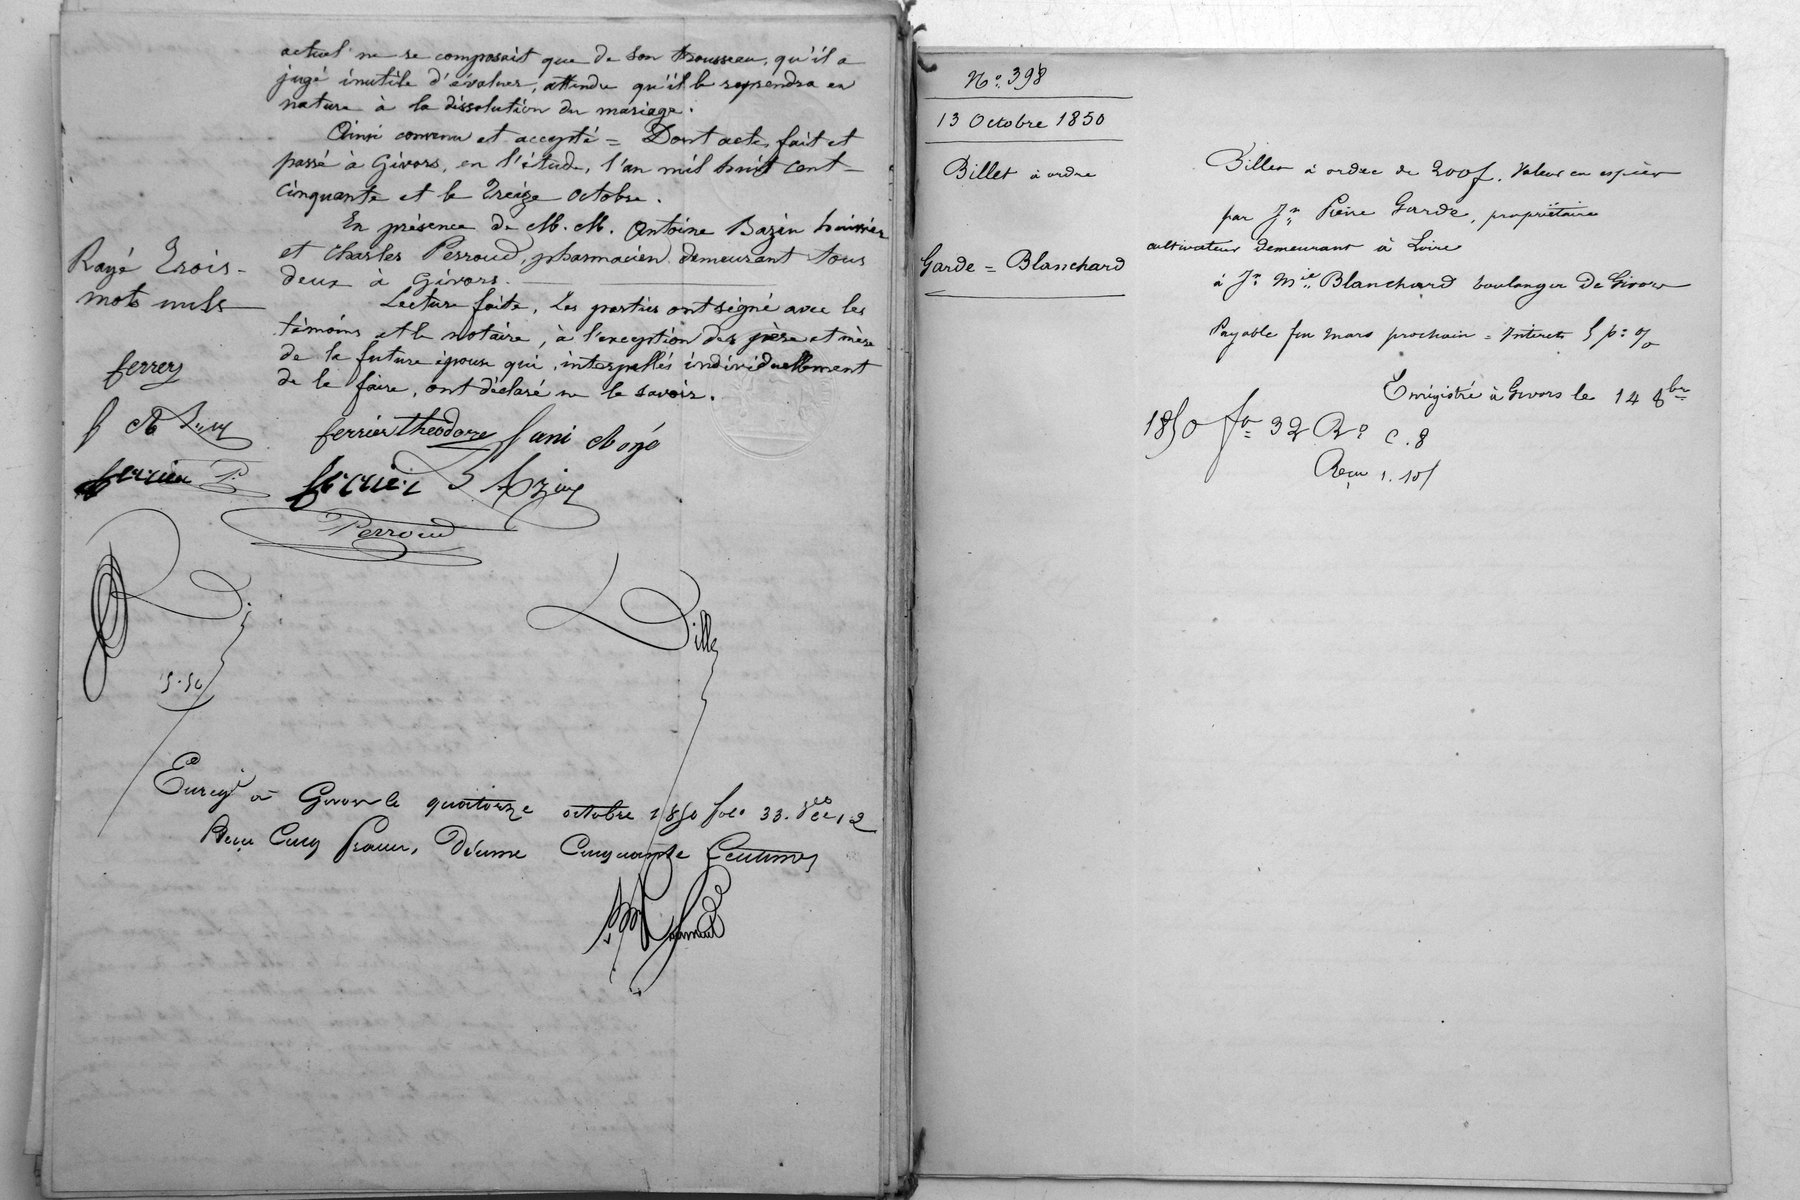 actuel ne se composait que de son trousseau, qu'il a
jugé inutile d'évaluer, attendu qu'il le reprendra en
nature à la dissolution du mariage.
Ainsi convenu et accepté = Dont acte, fait et
passé à Givors, en l'étude, l'an mil huit cent
cinquante et le treize octobre.
En présence de M. M. Antoine Bazin huissier
et Charles Perroud, pharmacien, demeurant tous
deux à Givors.
Lecture faite, les parties ont signé avec les
témoins et le notaire, à l'exception des père et mère
de la future épouse qui, interpellés individuellement
de le faire, ont déclaré ne le savoir.
Rayé Trois
mots nuls
ferrier théodore
ferrier P.
ferrier
Perroud
Dille
5.50
Enregé à Givors le quatorze octobre 1850 folo 33. Vo Ce 12
Reçu Cinq francs, Décime Cinquante Centimes
No. 398
13 Octobre 1850
Billet à ordre
Garde = Blanchard
Billet à ordre de 200f. valeur en espèces
par Jn Pierre Garde, propriétaire
cultivateur demeurant à Loire
à Jn Mie Blanchard boulanger de Givors
Payable fin mars prochain = Intérêts 5 p. %
Enregistré à Givors le 14 8bre
1850 fo 32 Ro C. 8
Reçu 1.10f